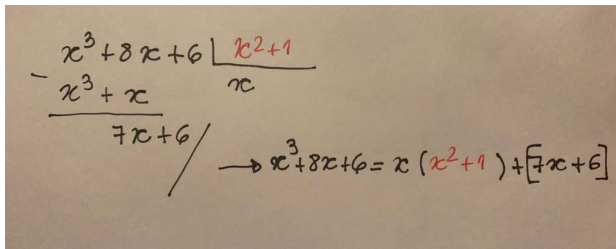 x³+8x+6 | x²+1
− x³+x x
7x+6
→ x³+8x+6 = x (x²+1) + [7x+6]